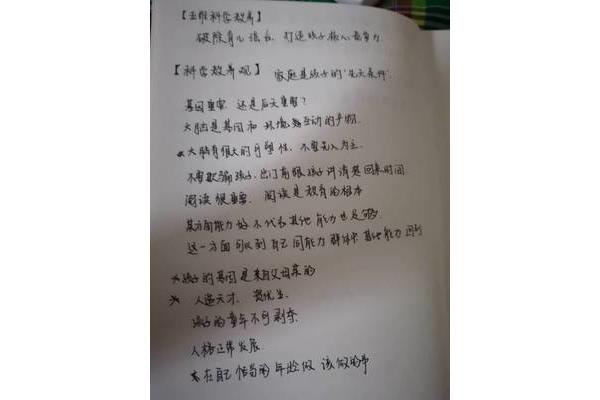 【五维科学教养】
破除育儿谣言，打造孩子核心竞争力
【科学教养观】 家庭是孩子的"先天条件"
基因重要 还是后天重要？
大脑是基因和环境互动的产物.
大脑有很大的可塑性，不要先入为主.
不要欺骗孩子，出门前跟孩子讲清楚回来时间.
阅读很重要. 阅读是教育的根本
某方面能力好不代表其他能力也足够.
这一方面 到自己同能力群体中 其他能力
*孩子的基因是来自父母亲的
* 人造天才、资优生.
孩子的童年不可剥夺.
人格正常发展.
在自己恰当的年龄做该做的事